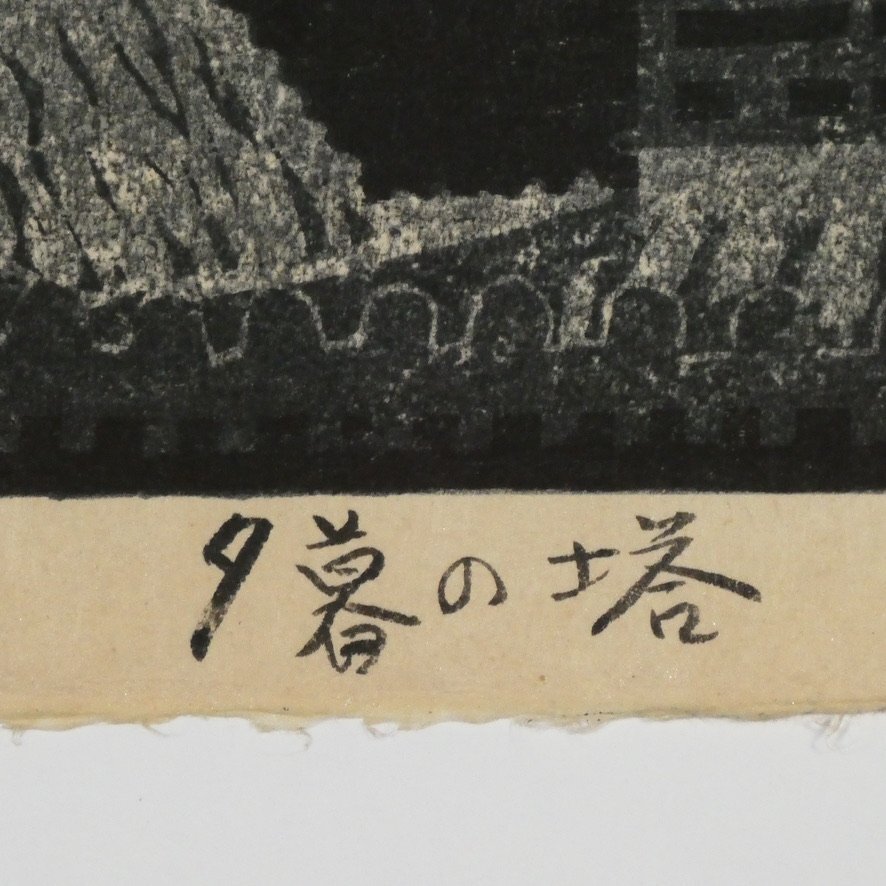 夕暮の塔